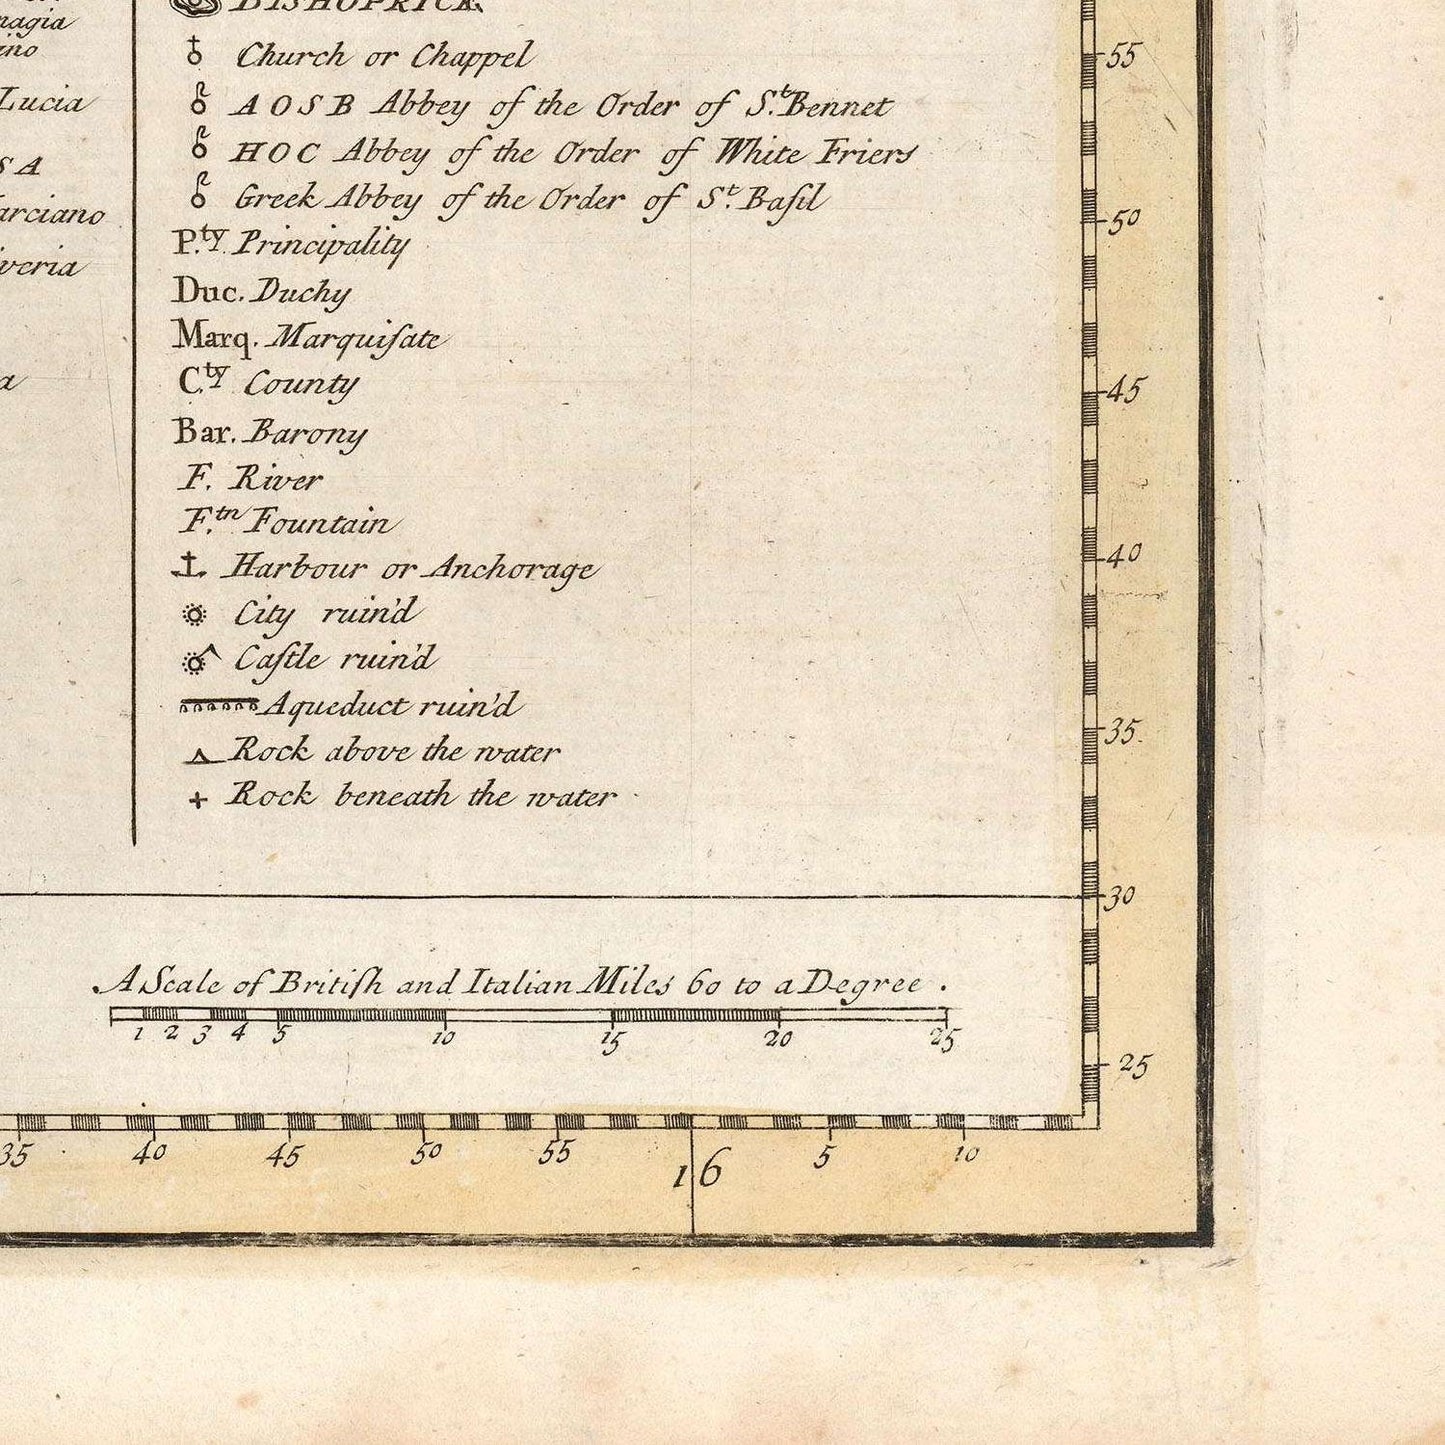 nagia
ino
Lucia
SA
arciano
iveria
a
BISHOPRICK
Church or Chappel
AOSB Abbey of the Order of S.t Bennet
HOC Abbey of the Order of White Friers
Greek Abbey of the Order of S.t Baſil
P.ty. Principality
Duc. Duchy
Marq. Marquiſate
C.ty County
Bar. Barony
F. River
F.tn Fountain
Harbour or Anchorage
City ruin'd
Caſtle ruin'd
Aqueduct ruin'd
Rock above the water
Rock beneath the water
55
50
45
40
35
30
25
A Scale of Britiſh and Italian Miles 60 to a Degree.
1 2 3 4 5 10 15 20 25
35 40 45 50 55 16 5 10